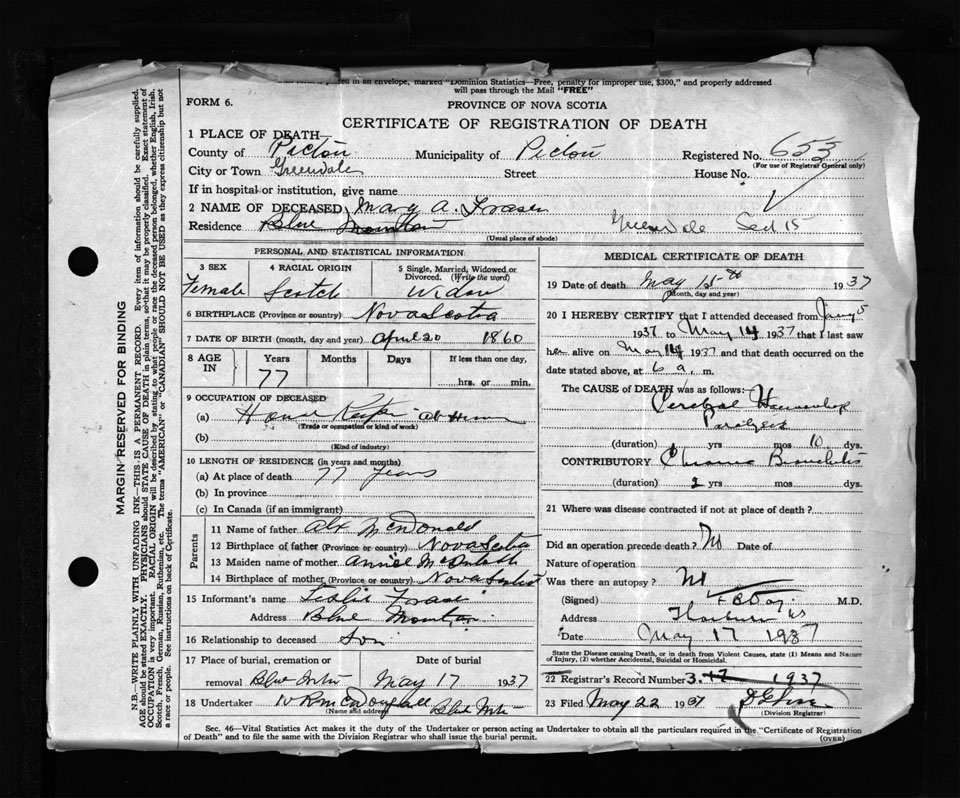 in an envelope, marked "Dominion Statistics—Free, penalty for improper use, $300," and properly addressed
will pass through the Mail "FREE"
FORM 6.
PROVINCE OF NOVA SCOTIA
CERTIFICATE OF REGISTRATION OF DEATH
1 PLACE OF DEATH
County of Pictou Municipality of Pictou Registered No. 653
(For use of Registrar General only)
City or Town Greendale Street House No.
If in hospital or institution, give name
2 NAME OF DECEASED Mary A. Fraser
Residence Blue Mountain Sed 15
(Usual place of abode)
PERSONAL AND STATISTICAL INFORMATION
3 SEX 4 RACIAL ORIGIN 5 Single, Married, Widowed or Divorced. (Write the word)
Female Scotch Widow
6 BIRTHPLACE (Province or country) Nova Scotia
7 DATE OF BIRTH (month, day and year) April 20 1860
8 AGE IN Years Months Days If less than one day,
77 hrs. or min.
9 OCCUPATION OF DECEASED
(a) House Keeper at Home
(Trade or occupation or kind of work)
(b)
(Kind of industry)
10 LENGTH OF RESIDENCE (in years and months)
(a) At place of death 77 years
(b) In province
(c) In Canada (if an immigrant)
Parents
11 Name of father Alx McDonald
12 Birthplace of father (Province or country) Nova Scotia
13 Maiden name of mother Annie McIntosh
14 Birthplace of mother (Province or country) Nova Scotia
15 Informant's name Leslie Fraser
Address Blue Mountain
16 Relationship to deceased Son
17 Place of burial, cremation or removal Blue Mtn Date of burial May 17 1937
18 Undertaker W R McDougall Blue Mtn
(Name and address)
MEDICAL CERTIFICATE OF DEATH
19 Date of death May 15th 1937
(Month, day and year)
20 I HEREBY CERTIFY that I attended deceased from Jany 5
1937 to May 14 1937 that I last saw
her alive on May 14 1937 and that death occurred on the
date stated above, at 6 a. m.
The CAUSE of DEATH was as follows:
Cerebral Hemorrhage
Paralysis
(duration) yrs mos 10 dys.
CONTRIBUTORY Chronic Bronchitis
(duration) 2 yrs mos dys.
21 Where was disease contracted if not at place of death?
Did an operation precede death? No Date of
Nature of operation
Was there an autopsy? No
(Signed) M.D.
Address
Date May 17 1937
State the Disease causing Death, or in death from Violent Causes, state (1) Means and Nature
of Injury, (2) whether Accidental, Suicidal or Homicidal.
22 Registrar's Record Number 3. 17 1937
23 Filed May 22 1937
(Division Registrar)
Sec. 46—Vital Statistics Act makes it the duty of the Undertaker or person acting as Undertaker to obtain all the particulars required in the "Certificate of Registration
of Death" and to file the same with the Division Registrar who shall issue the burial permit. (OVER)
MARGIN RESERVED FOR BINDING
N.B.—WRITE PLAINLY WITH UNFADING INK—THIS IS A PERMANENT RECORD. Every item of information should be carefully supplied.
AGE should be stated EXACTLY. PHYSICIANS should STATE CAUSE OF DEATH in plain terms, so that it may be properly classified. Exact statement of
OCCUPATION is very important. RACIAL ORIGIN will be described by stating to what people or race the deceased person belonged, whether English, Irish,
Scotch, French, German, Russian, Ruthenian, etc. The terms "AMERICAN" or "CANADIAN" SHOULD NOT BE USED as they express citizenship but not
a race or people. See instructions on back of Certificate.